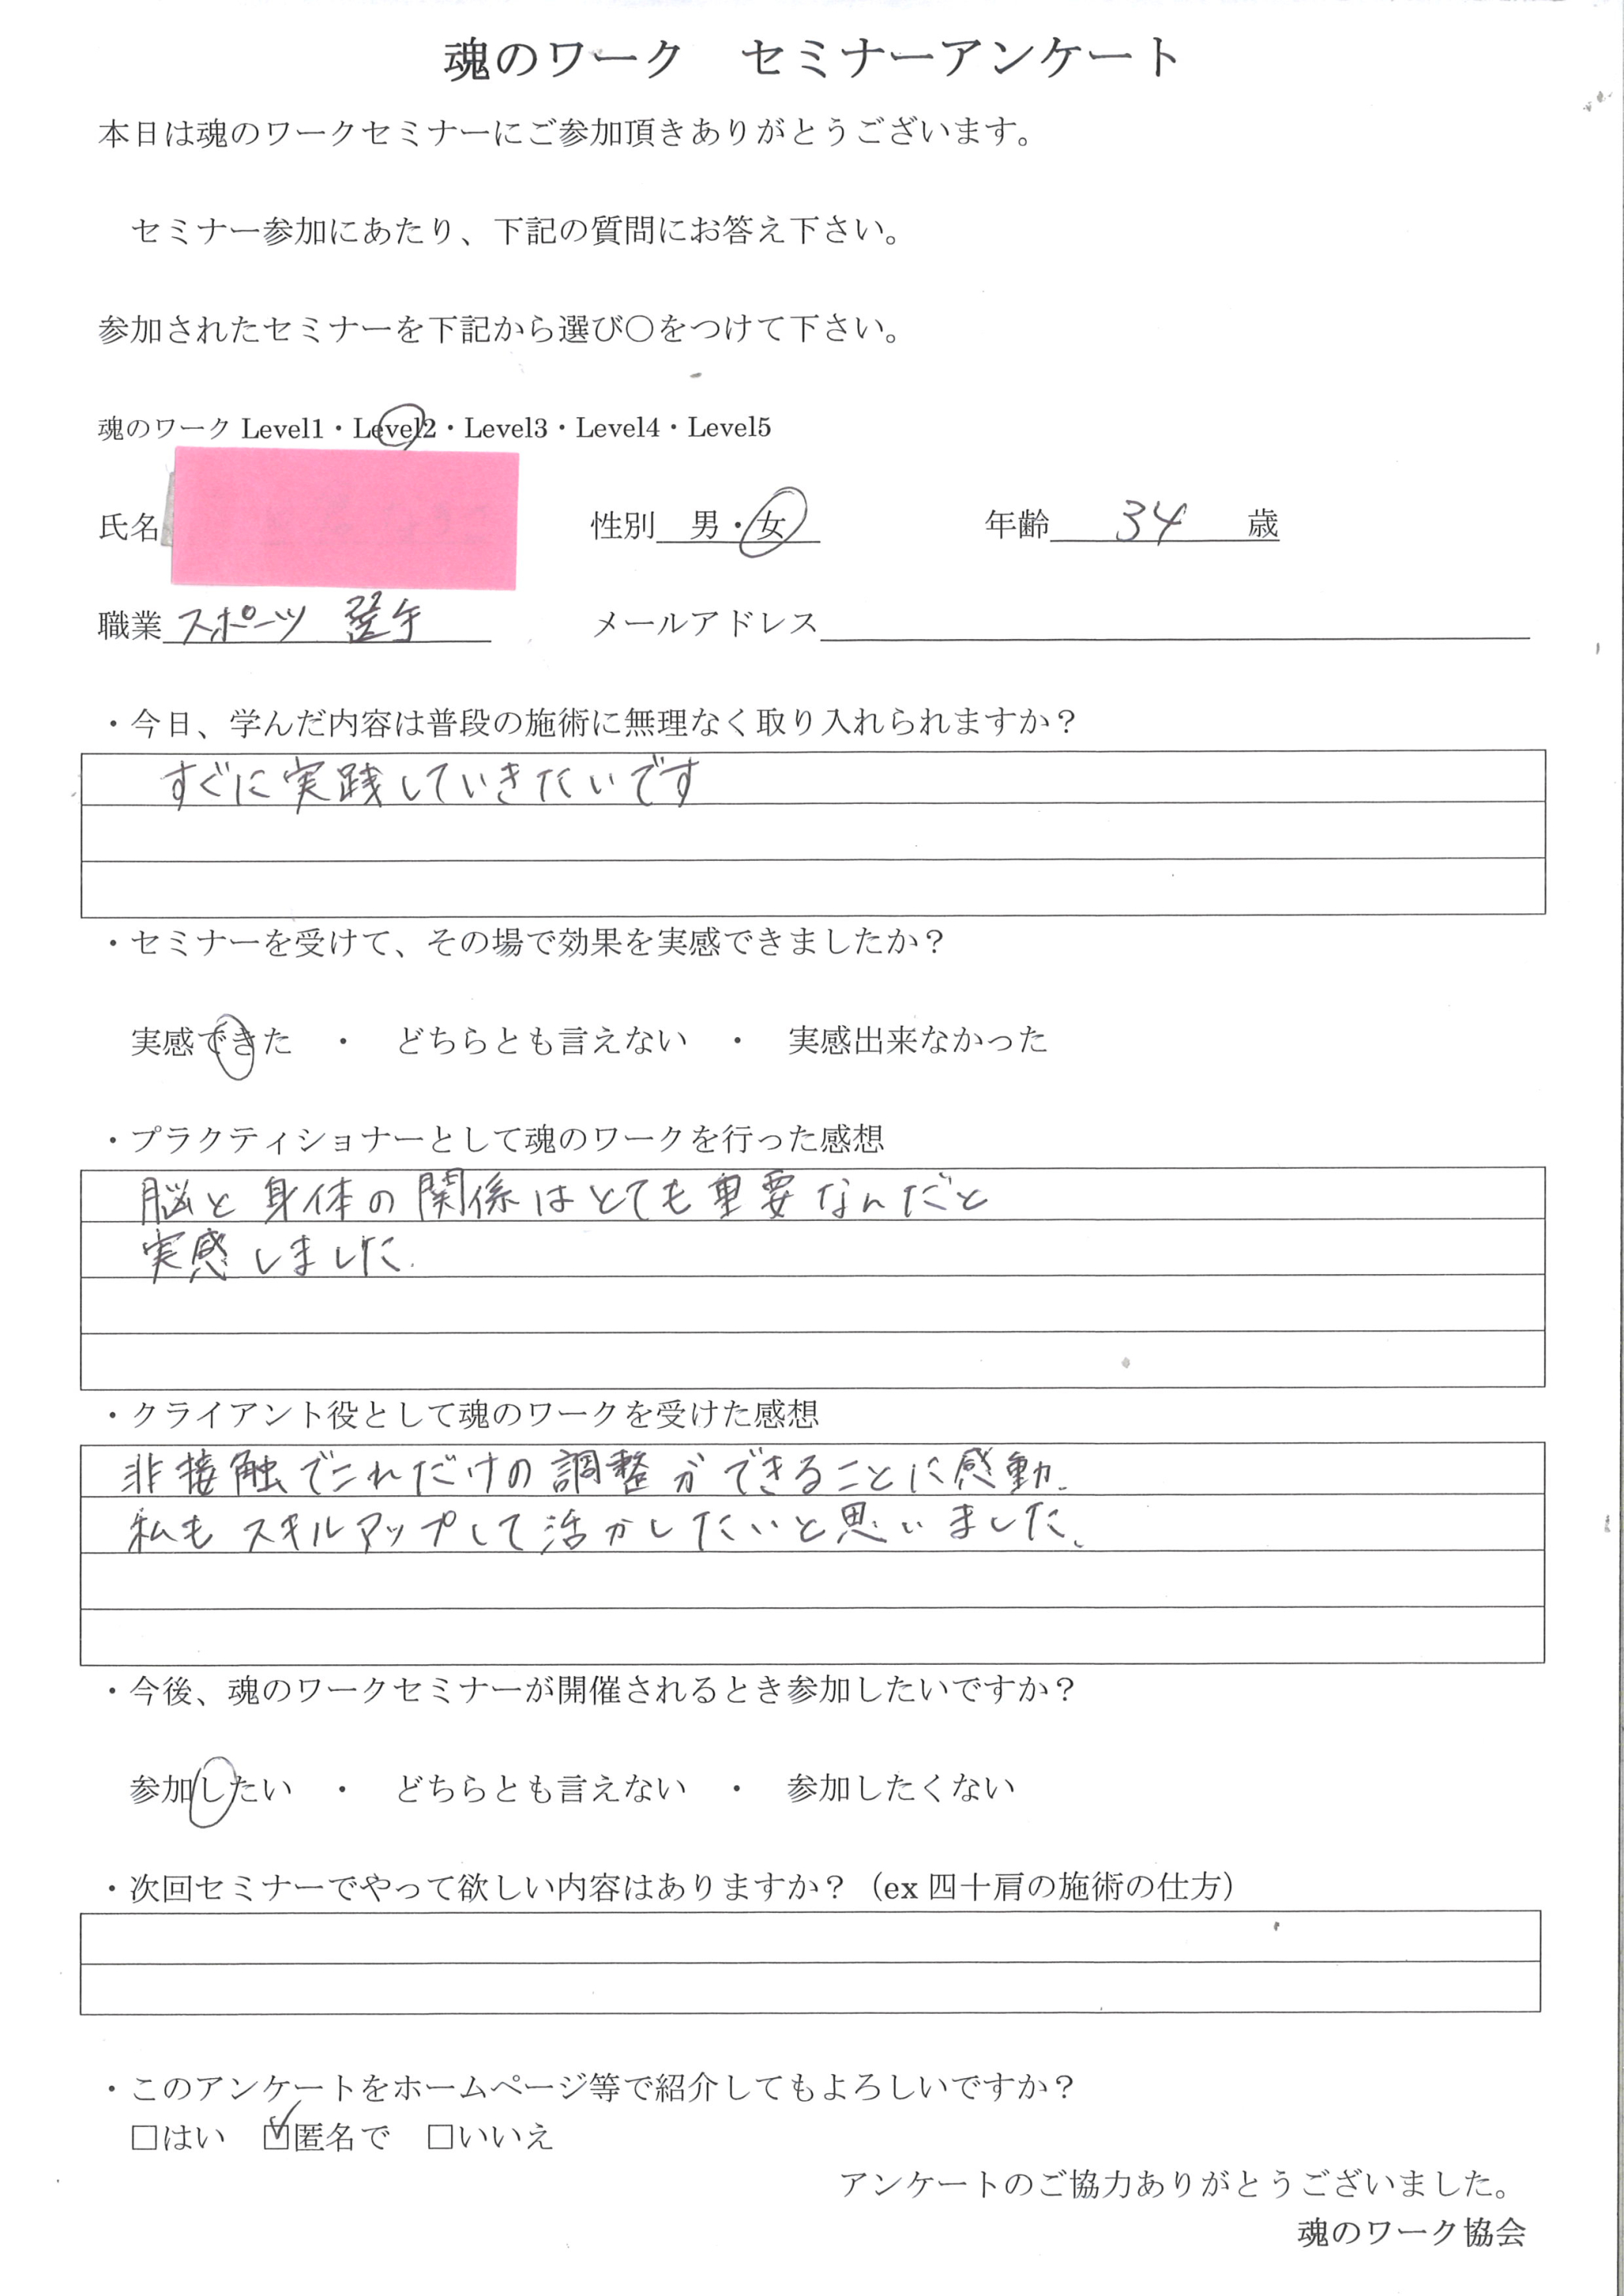 魂のワーク　セミナーアンケート
本日は魂のワークセミナーにご参加頂きありがとうございます。
セミナー参加にあたり、下記の質問にお答え下さい。
参加されたセミナーを下記から選び○をつけて下さい。
魂のワーク Level1・Level2・Level3・Level4・Level5
氏名　性別　男・女　年齢　34　歳
職業　スポーツ選手　メールアドレス
・今日、学んだ内容は普段の施術に無理なく取り入れられますか？
すぐに実践していきたいです
・セミナーを受けて、その場で効果を実感できましたか？
実感できた　・　どちらとも言えない　・　実感出来なかった
・プラクティショナーとして魂のワークを行った感想
脳と身体の関係はとても重要なんだと
実感しました.
・クライアント役として魂のワークを受けた感想
非接触でこれだけの調整ができることに感動.
私もスキルアップして活かしたいと思いました、
・今後、魂のワークセミナーが開催されるとき参加したいですか？
参加したい　・　どちらとも言えない　・　参加したくない
・次回セミナーでやって欲しい内容はありますか？（ex 四十肩の施術の仕方）
・このアンケートをホームページ等で紹介してもよろしいですか？
□はい　☑匿名で　□いいえ
アンケートのご協力ありがとうございました。
魂のワーク協会